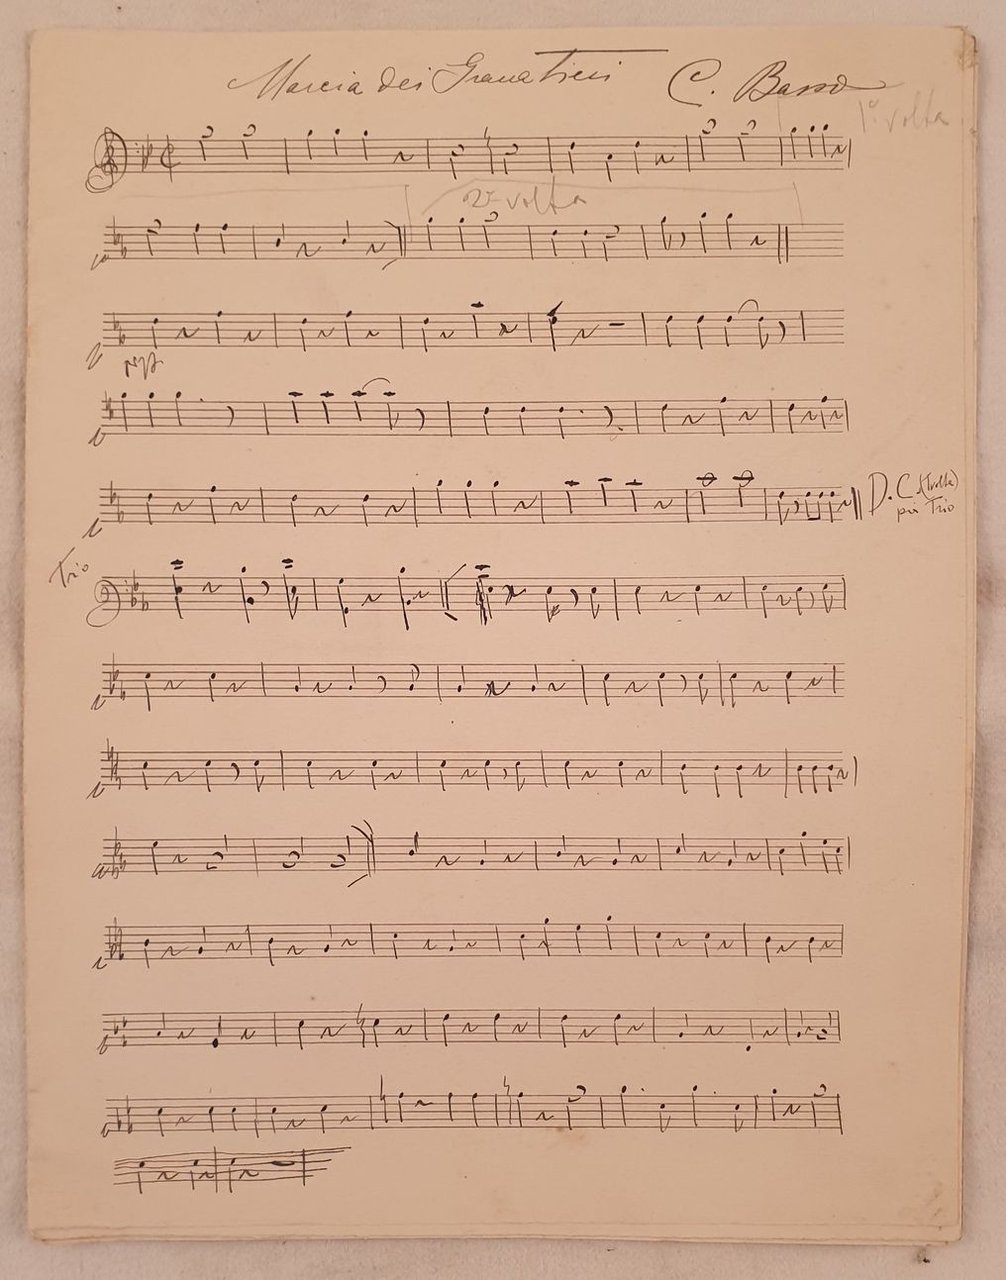 Marcia dei Granatieri C. Basso
1ª volta
2ª volta
D.C.
poi Trio
Trio